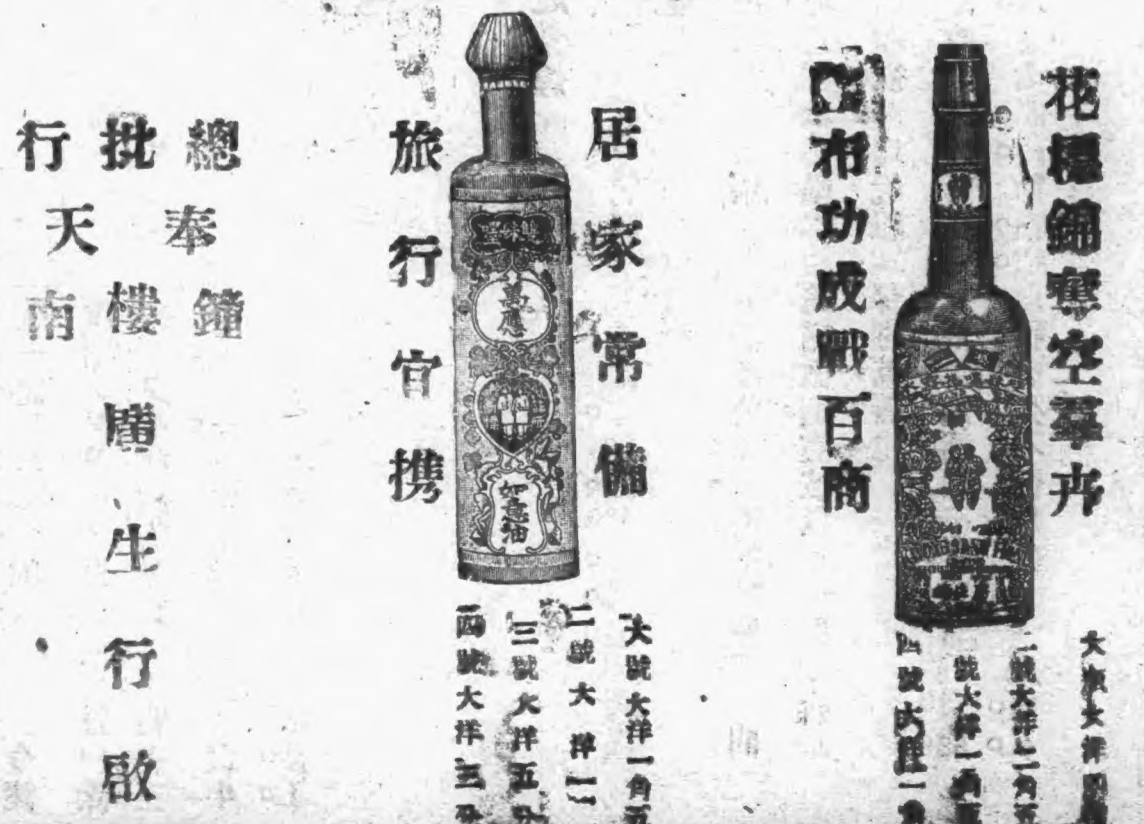 花標錦奪空羣卉
布功成戰百商
大瓶大洋
號大洋二角五
號大洋一角五
四號大洋一角
居家常備
萬應
如意油
旅行宜携
大號大洋一角五
二號大洋一
三號大洋五分
四號大洋三分
總批行
奉天
鐘樓南
廣生行啟